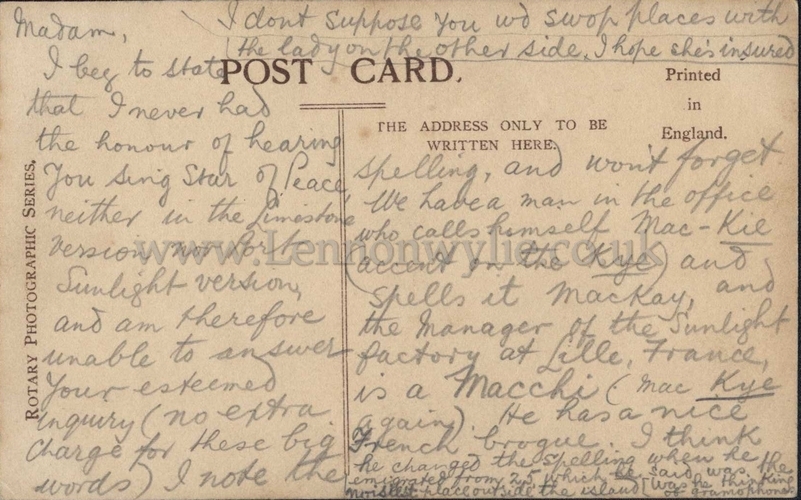 I dont suppose you wd swop places with
the lady on the other side. I hope she's insured
Madam,
I beg to state
that I never had
the honour of hearing
you sing Star of Peace
neither in the Limestone
version nor Port
Sunlight version,
and am therefore
unable to answer
your esteemed
inquiry (no extra
charge for these big
words) I note the
POST CARD.
Printed
in
England.
THE ADDRESS ONLY TO BE
WRITTEN HERE.
spelling, and won't forget
We have a man in the office
who calls himself Mac-Kie
(accent on the Kye) and
spells it Mackay, and
the Manager of the Sunlight
factory at Lille, France,
is a Macchi (Mac Kye
again). He has a nice
French brogue. I think
he changed the spelling when he
emigrated from 25 which he said was the
noisiest place outside the island (Was he thinking
of gramophones
ROTARY PHOTOGRAPHIC SERIES.
www.Lennonwylie.co.uk